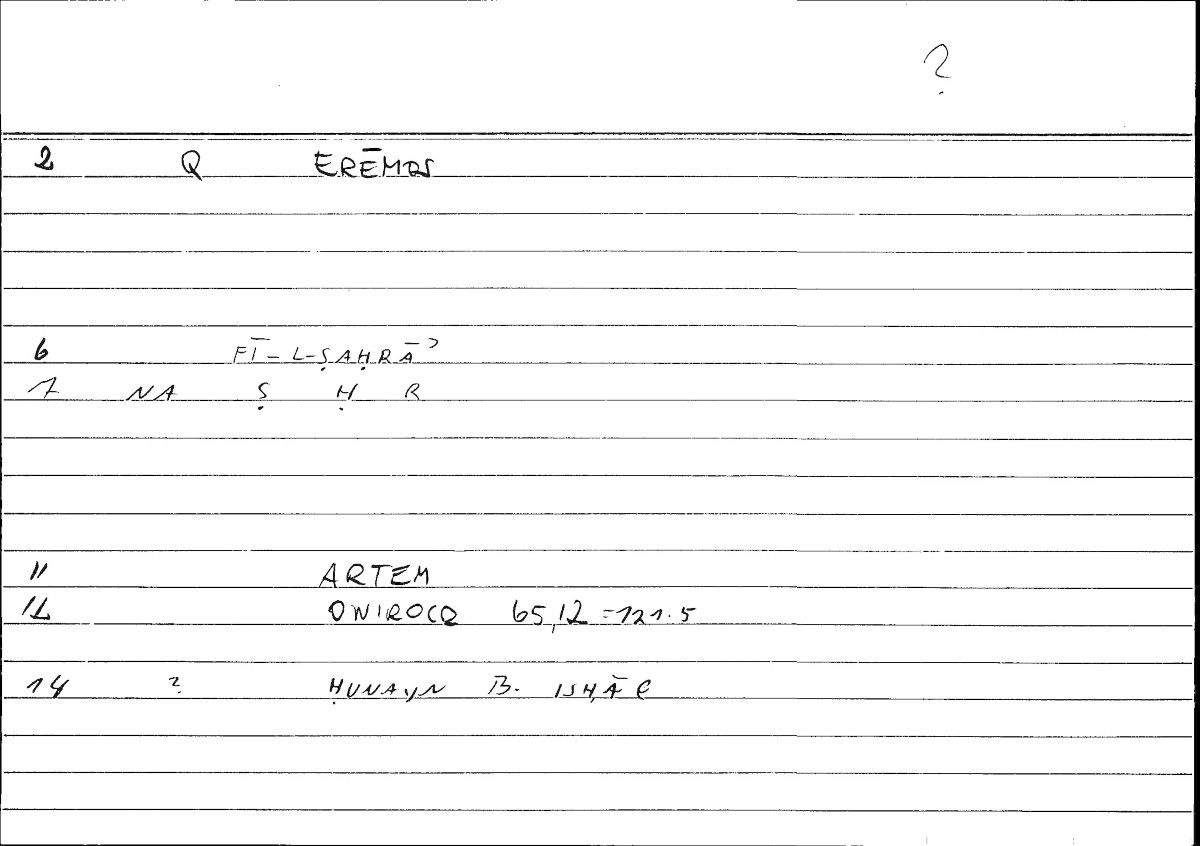 ?
2 Q ERĒMOS
6 FĪ-L-ṢAḤRĀʾ
7 NA Ṣ Ḥ R
11 ARTEM
12 ONIROCR 65,12 =121.5
14 ? ḤUNAYN B. ISḤĀQ